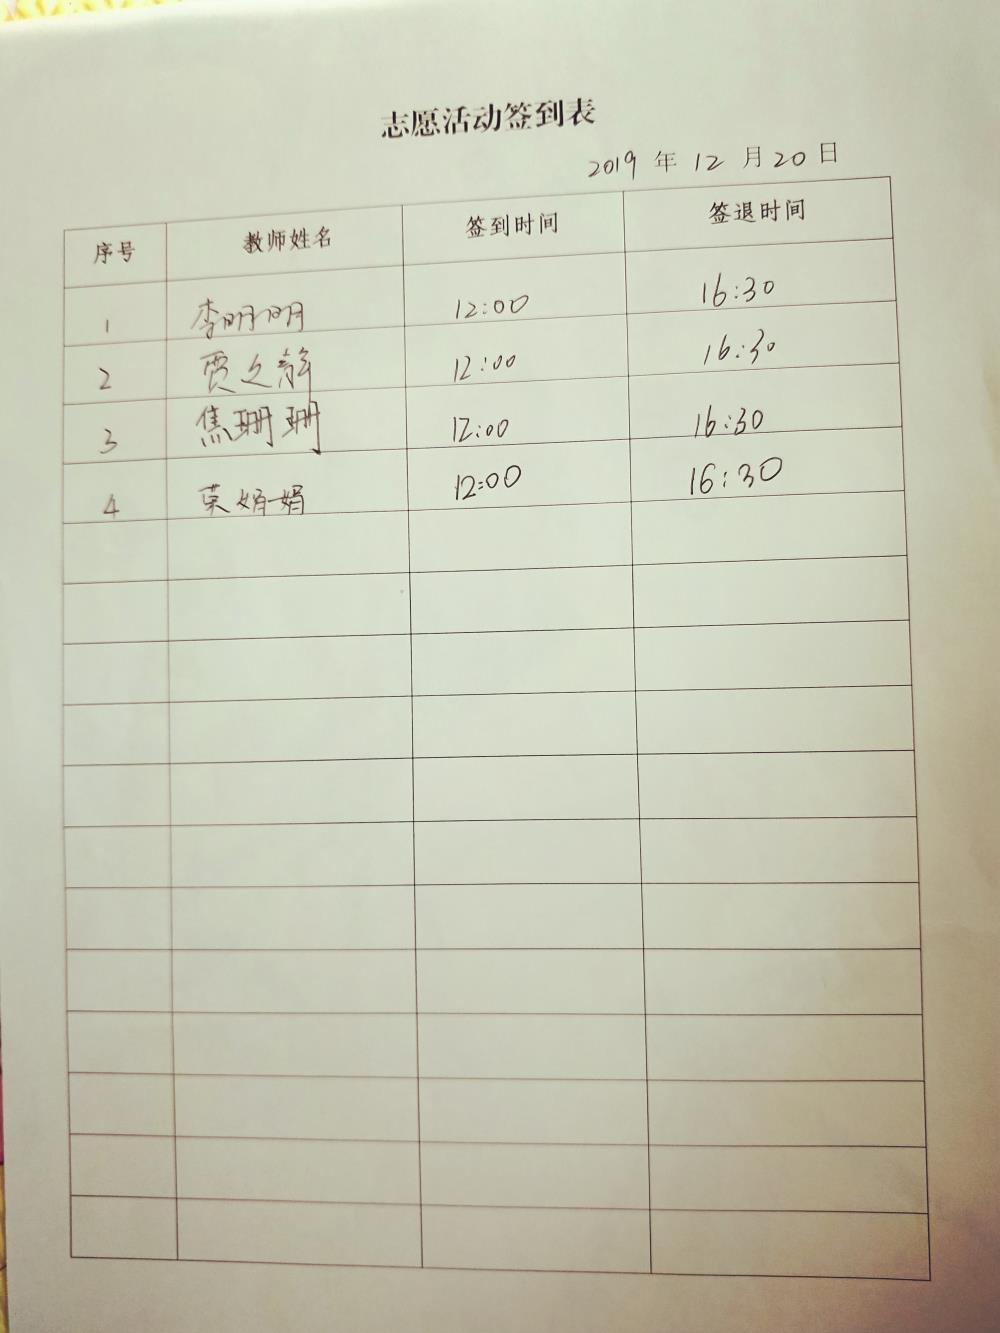 志愿活动签到表
2019 年 12 月 20 日
序号 教师姓名 签到时间 签退时间
1 李明明 12:00 16:30
2 贾之静 12:00 16:30
3 焦珊珊 12:00 16:30
4 荣娟娟 12:00 16:30